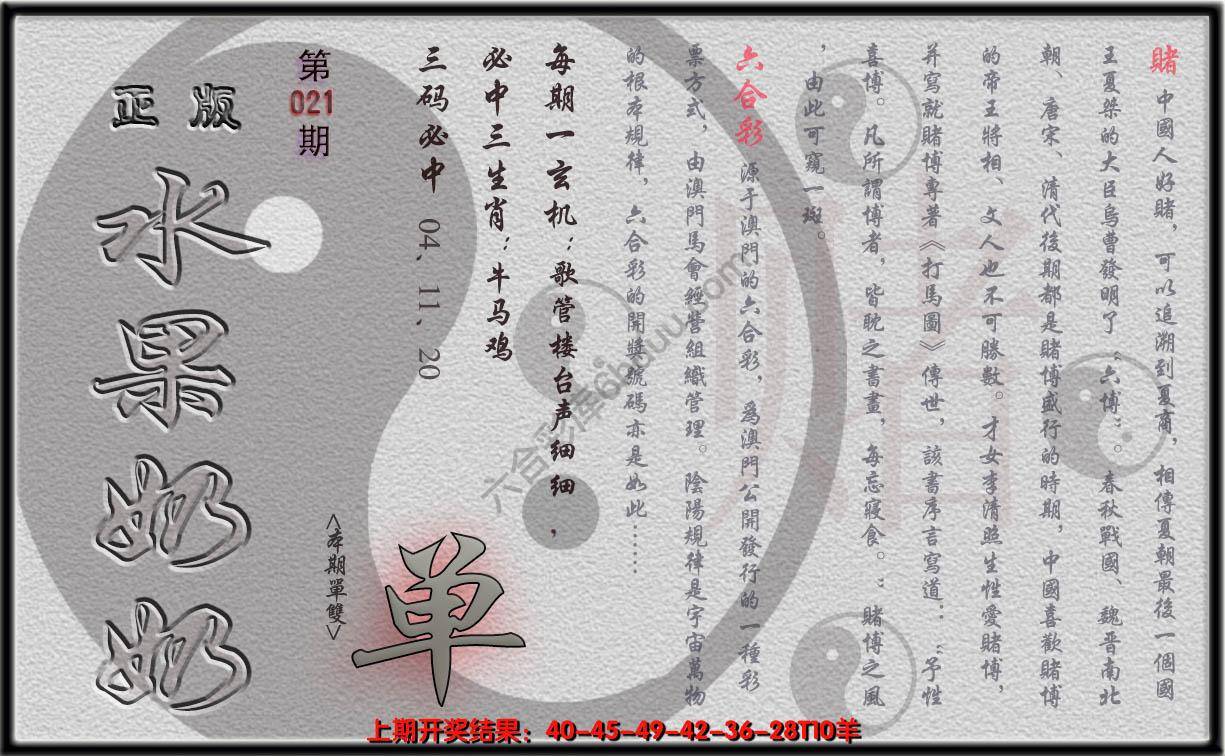 賭 中國人好賭，可以追溯到夏商，相傳夏朝最後一個國
王夏桀的大臣烏曹發明了“六博”。春秋戰國、魏晋南北
朝、唐宋、清代後期都是賭博盛行的時期，中國喜歡賭博
的帝王將相、文人也不可勝數。才女李清照生性愛賭博，
并寫就賭博專著《打馬圖》傳世，該書序言寫道：“予性
喜博。凡所謂博者，皆耽之書畫，每忘寢食。”賭博之風
，由此可窺一斑。
六合彩 源于澳門的六合彩，爲澳門公開發行的一種彩
票方式，由澳門馬會經營組織管理。陰陽規律是宇宙萬物
的根本規律，六合彩的開獎號碼亦是如此……
每期一玄机：歌管楼台声细细，
必中三生肖：牛马鸡
三码必中 04．11．20
第021期
正版
水果奶奶
<本期單雙>
单
上期开奖结果：40-45-49-42-36-28T10羊